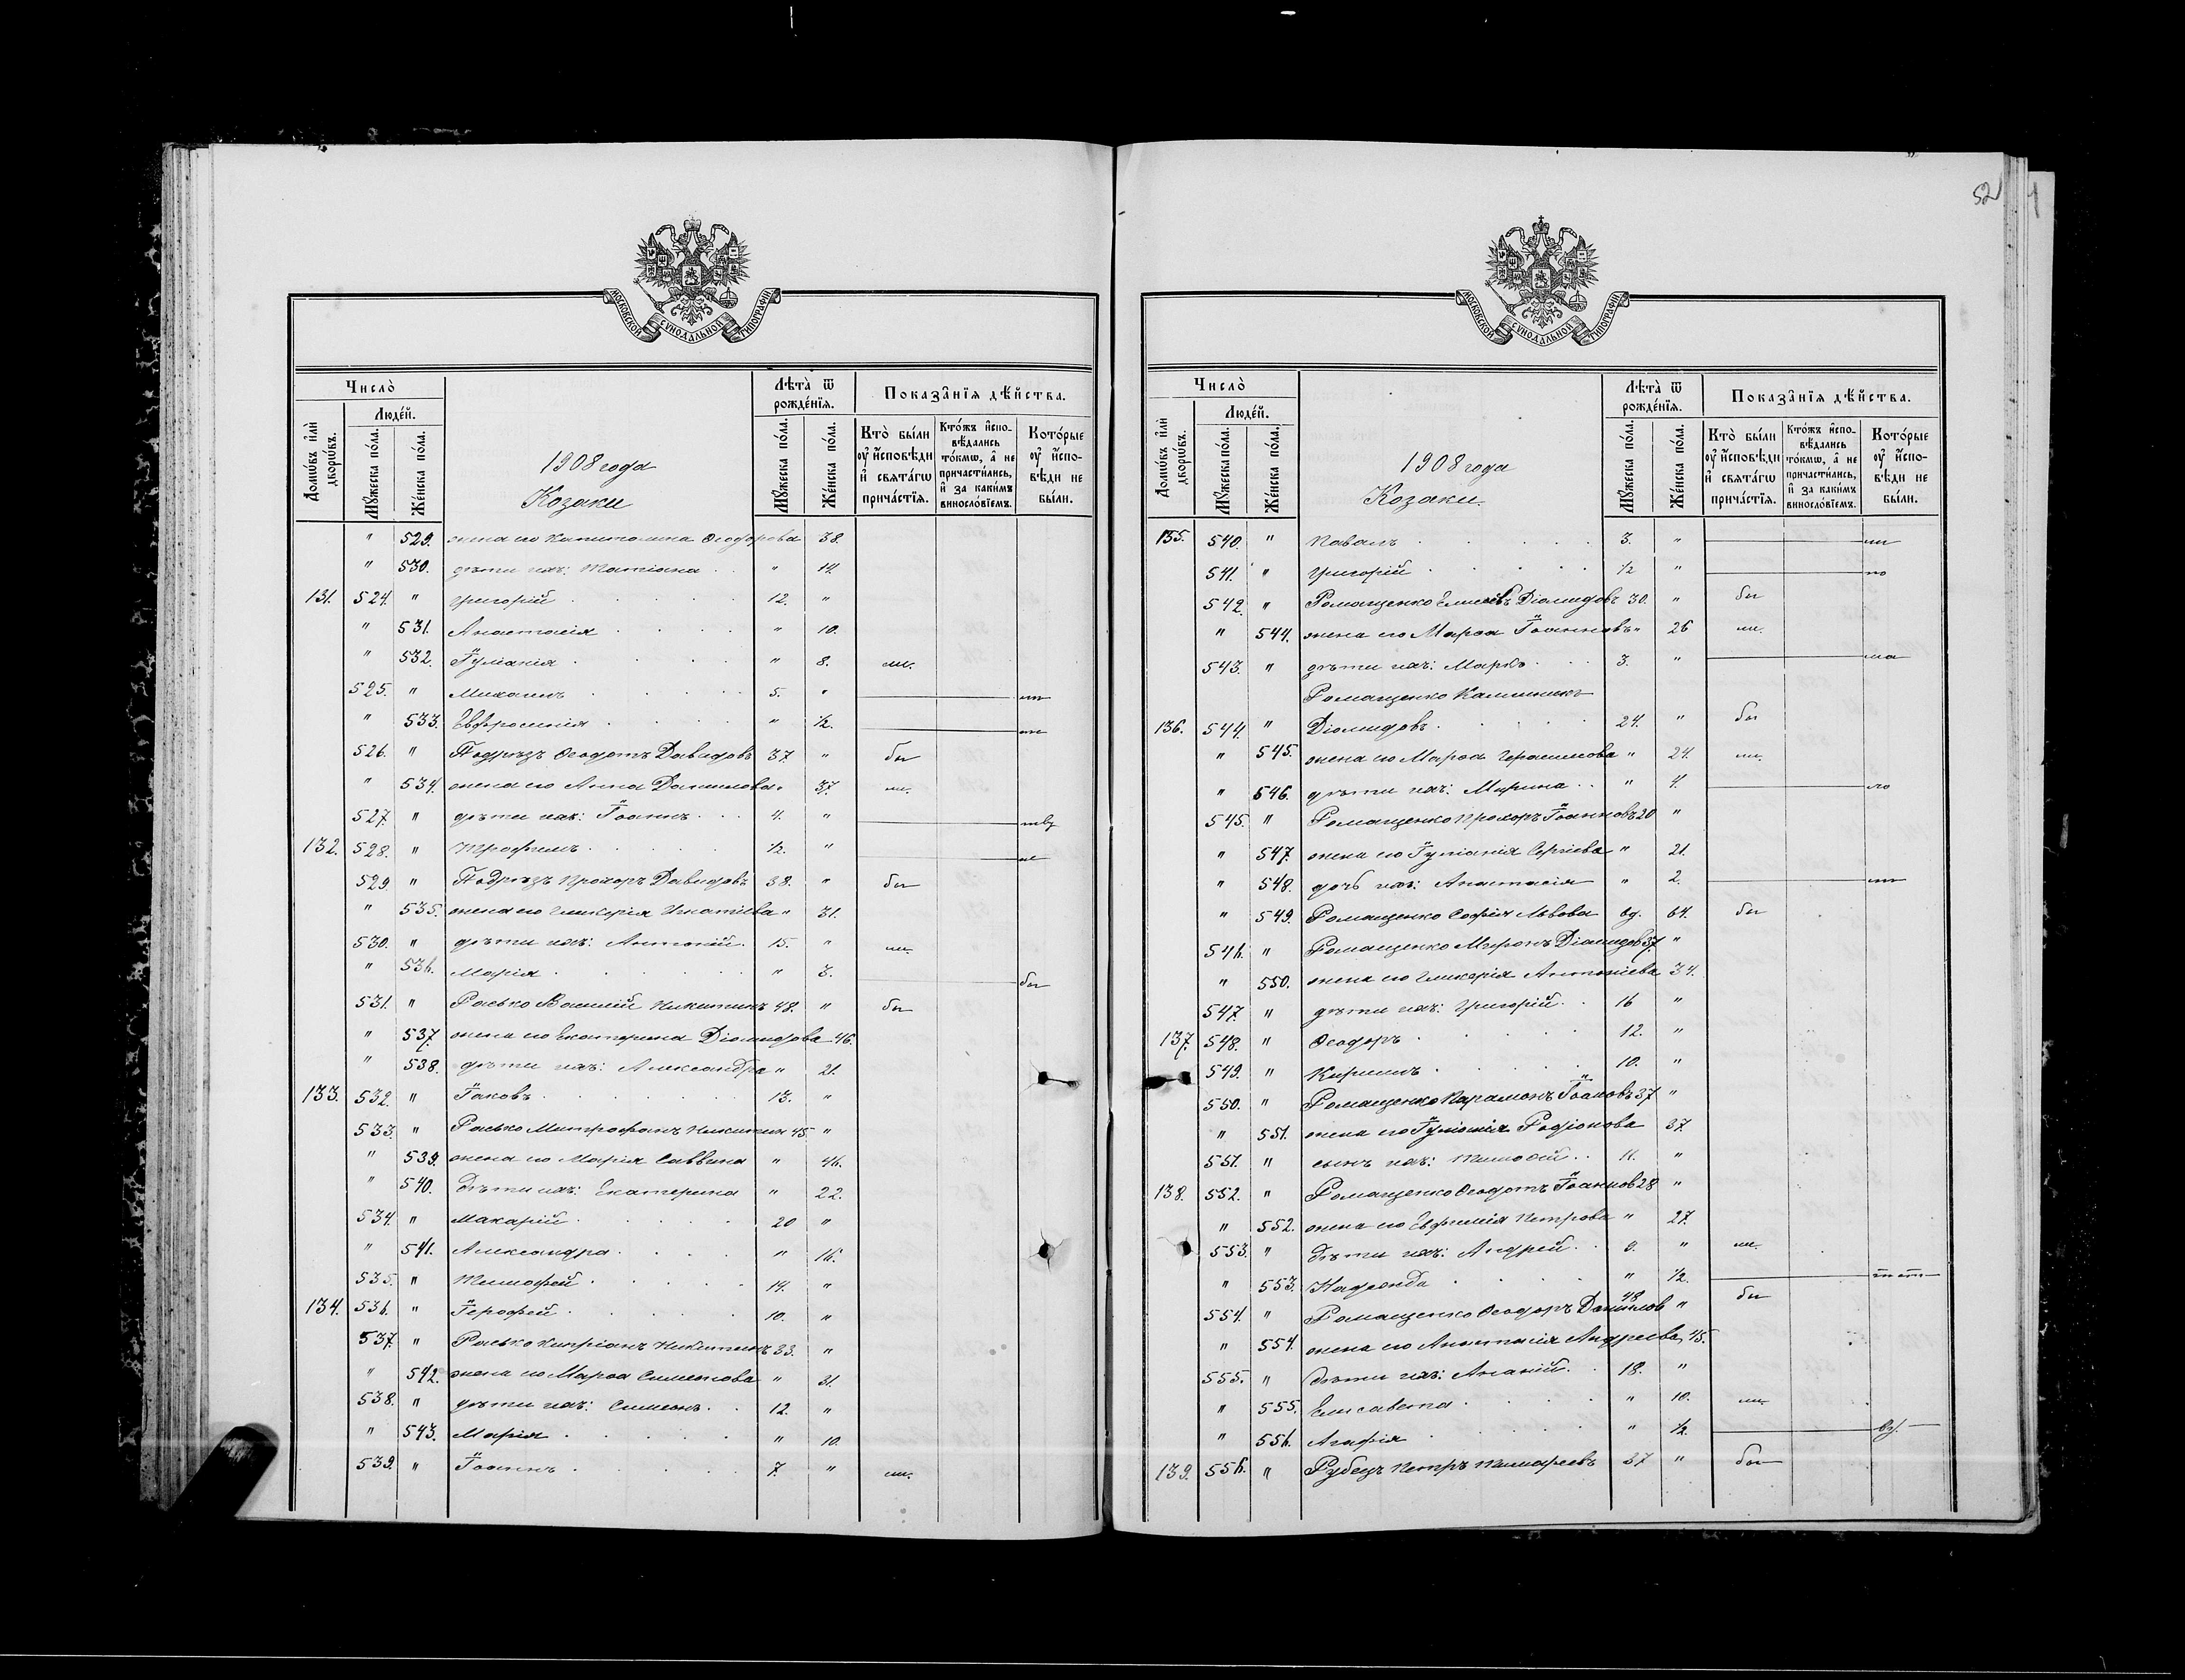 52
МОСКОВСКОЙ СѴНОДАЛЬНОЙ ТИПОГРАФІИ
Число̀
Домѡ́въ и҆лѝ дворѡ́въ.
Люде́й.
Мꙋ́жеска по́ла.
Же́нска по́ла.
1908 года
Козаки
Лѣта̀ ѿ рожде́нїѧ.
Мꙋ́жеска по́ла.
Же́нска по́ла.
Показа̑нїѧ дѣ́йства.
Кто̀ бы́ли ᲂу҆ и҆́сповѣди и҆ свѧта́гѡ прича́стїѧ.
Кто́жъ и҆спо-вѣ́дались то́кмѡ, а҆ не причасти́лись, и҆ за каки́мъ винослѡ́вїемъ.
Кото́рые ᲂу҆ и҆́спо-вѣди не бы́ли.
" 529. жена его Капитолина Ѳеодорова 38.
" 530. дѣти ихъ: Татіана " 14.
131. 524. " Григорій 12. "
" 531. Анастасія " 10.
" 532. Іуліанія " 8. ли.
525. " Михаилъ 5. "
" 533. Евфросинія " ½.
526. " Подрѣзъ Ѳеодотъ Давидовъ 37. " бы
" 534. жена его Анна Даниилова " 37. ли.
527. " дѣти ихъ: Іоаннъ 4. "
132. 528. " Трофимъ ½. " не
529. " Подрѣзъ Прохоръ Давидовъ 38. " бы
" 535. жена его Гликерія Игнатіева " 31.
530. " дѣти ихъ: Антоній 15. " ли.
" 536. Марія " 3. бы
531. " Расько Василій Никитинъ 48. " бы
" 537. жена его Екатерина Діомидова 46.
" 538. дѣти ихъ: Александра " 21.
133. 532. " Іаковъ 13. "
533. " Расько Митрофанъ Никитинъ 45. "
" 539. жена его Марія Саввина " 46.
" 540. Дѣти ихъ: Екатерина " 22.
534. " Макарій 20 "
" 541. Александра " 16.
535. " Тимофей 14. "
134. 536. " Іерофей 10. "
537. " Расько Кипріанъ Никитинъ 33. "
" 542. жена его Марѳа Симеонова " 31.
538. " дѣти ихъ: Симеонъ 12. "
" 543. Марія " 10.
539. " Іоаннъ 7. " ли.
МОСКОВСКОЙ СѴНОДАЛЬНОЙ ТИПОГРАФІИ
Число̀
Домѡ́въ и҆лѝ дворѡ́въ.
Люде́й.
Мꙋ́жеска по́ла.
Же́нска по́ла.
1908 года
Козаки.
Лѣта̀ ѿ рожде́нїѧ.
Мꙋ́жеска по́ла.
Же́нска по́ла.
Показа̑нїѧ дѣ́йства.
Кто̀ бы́ли ᲂу҆ и҆́сповѣди и҆ свѧта́гѡ прича́стїѧ.
Кто́жъ и҆спо-вѣ́дались то́кмѡ, а҆ не причасти́лись, и҆ за каки́мъ винослѡ́вїемъ.
Кото́рые ᲂу҆ и҆́спо-вѣди не бы́ли.
135. 540. " Павелъ 3. " ли
541. " Григорій ½ " по
542. " Ромащенко Діомидовъ 30. " бы
" 544. жена его Марѳа Іоаннова " 26 ли.
543. " дѣти ихъ: Маркъ 3. " ма
Ромащенко Каллиникъ
136. 544. " Діомидовъ 24. " бы
" 545. жена его Марѳа Герасимова " 24. ли.
" 546. дѣти ихъ: Марина " 4. ло
545. " Ромащенко Прохоръ Іоанновъ 20 "
" 547. жена его Іуліанія Сергіева " 21.
" 548. дочь ихъ: Анастасія " 2.
" 549. Ромащенко Софія Львова вд. 64. бы
546. " Ромащенко Миронъ Діомидов 37. "
" 550. жена его Гликерія Антоніева 34.
547. " дѣти ихъ: Григорій 16 "
137. 548. " Ѳеодоръ 12. "
549. " Кириллъ 10. "
550. " Ромащенко Парамонъ Іоановъ 37 "
" 551. жена его Іуліанія Родіонова 37.
551. " сынъ ихъ: Тимоѳей 11. "
138. 552. " Ромащенко Ѳеодотъ Іоаннов 28 "
" 552. жена его Евфимія Петрова " 27.
553. " Дѣти ихъ: Андрей 9. " ли.
" 553. Надежда " ½.
554. " Ромащенко Ѳеодоръ Даниилов 48 " бы
" 554. жена его Анастасія Андреева 45.
555. " Дѣти ихъ: Ананій 18. "
" 555. Елисавета " 10. ли.
" 556. Агафія " ½.
139. 556. " Рубецъ Петръ Тимофеевъ 37 " бы